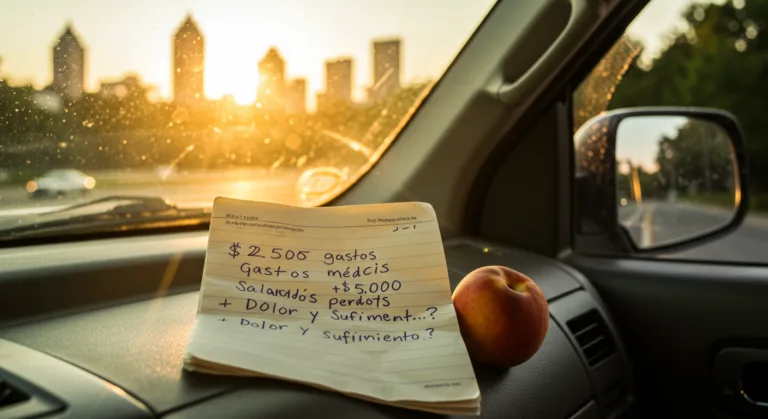 $2506 gastos
Gastos médcis
Salaridós +$5,000
perdots
+ Dolor y Sufiment...?
+ Dolor y sufiiniento.?